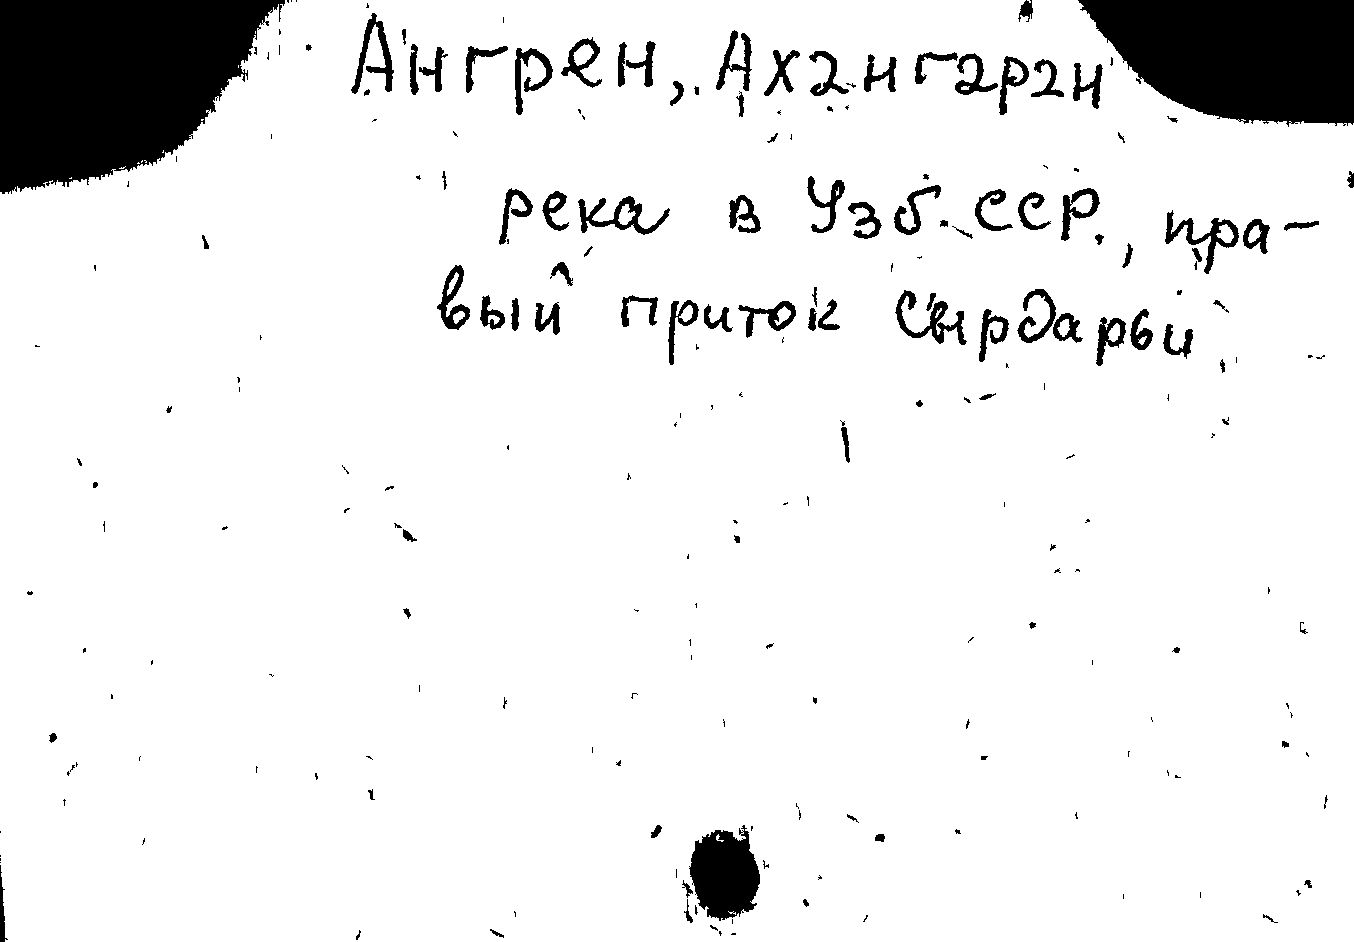 Ангрен, Ахангаран
река в Узб. ССР., пра-
вый приток Сырдарьи